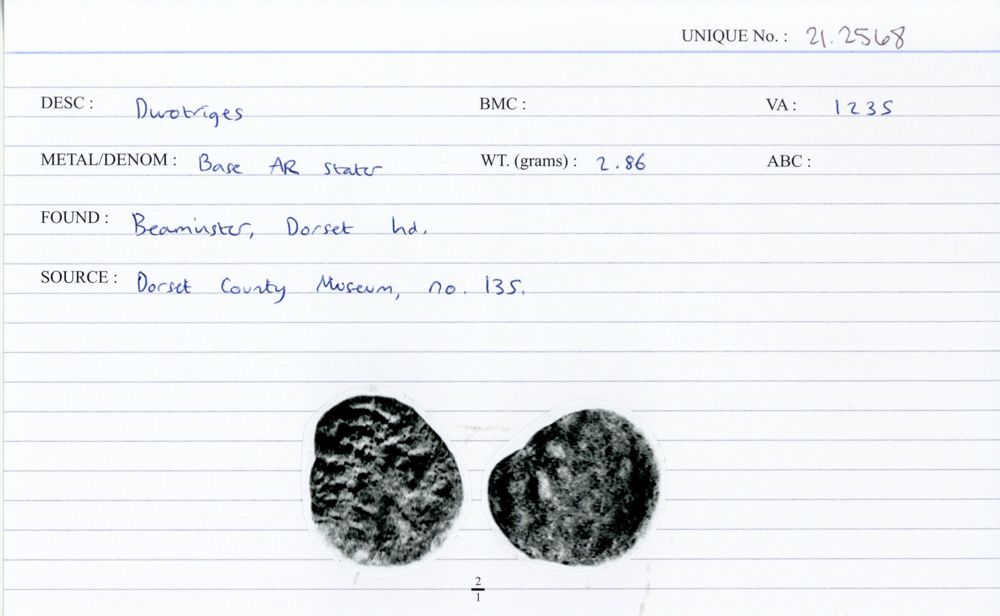 UNIQUE No. : 21.2568
DESC : Durotriges BMC : VA : 1235
METAL/DENOM : Base AR stater WT. (grams) : 2.86 ABC :
FOUND : Beaminster, Dorset hd.
SOURCE : Dorset County Museum, no. 135.
2
1